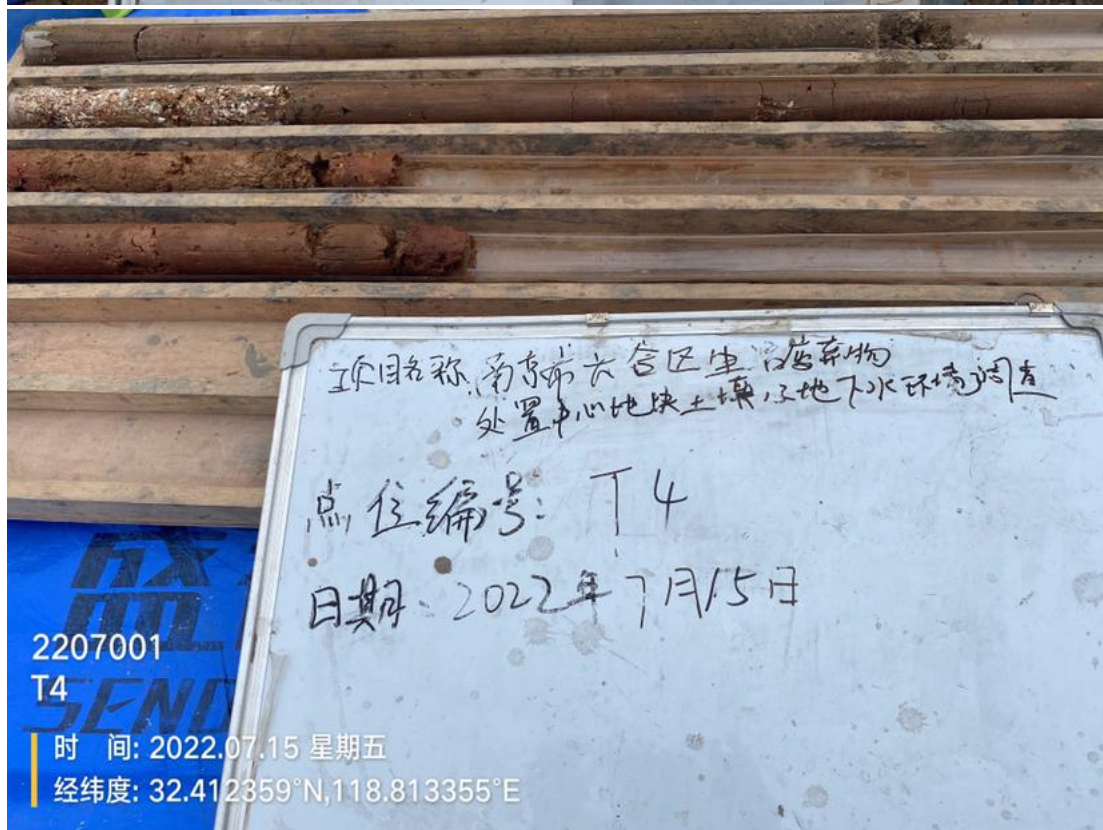 项目名称:南京市六合区生活废弃物
处置中心地块土壤及地下水环境调查
点位编号: T4
日期: 2022年7月15日
SEND
2207001
T4
时 间: 2022.07.15 星期五
经纬度: 32.412359°N,118.813355°E